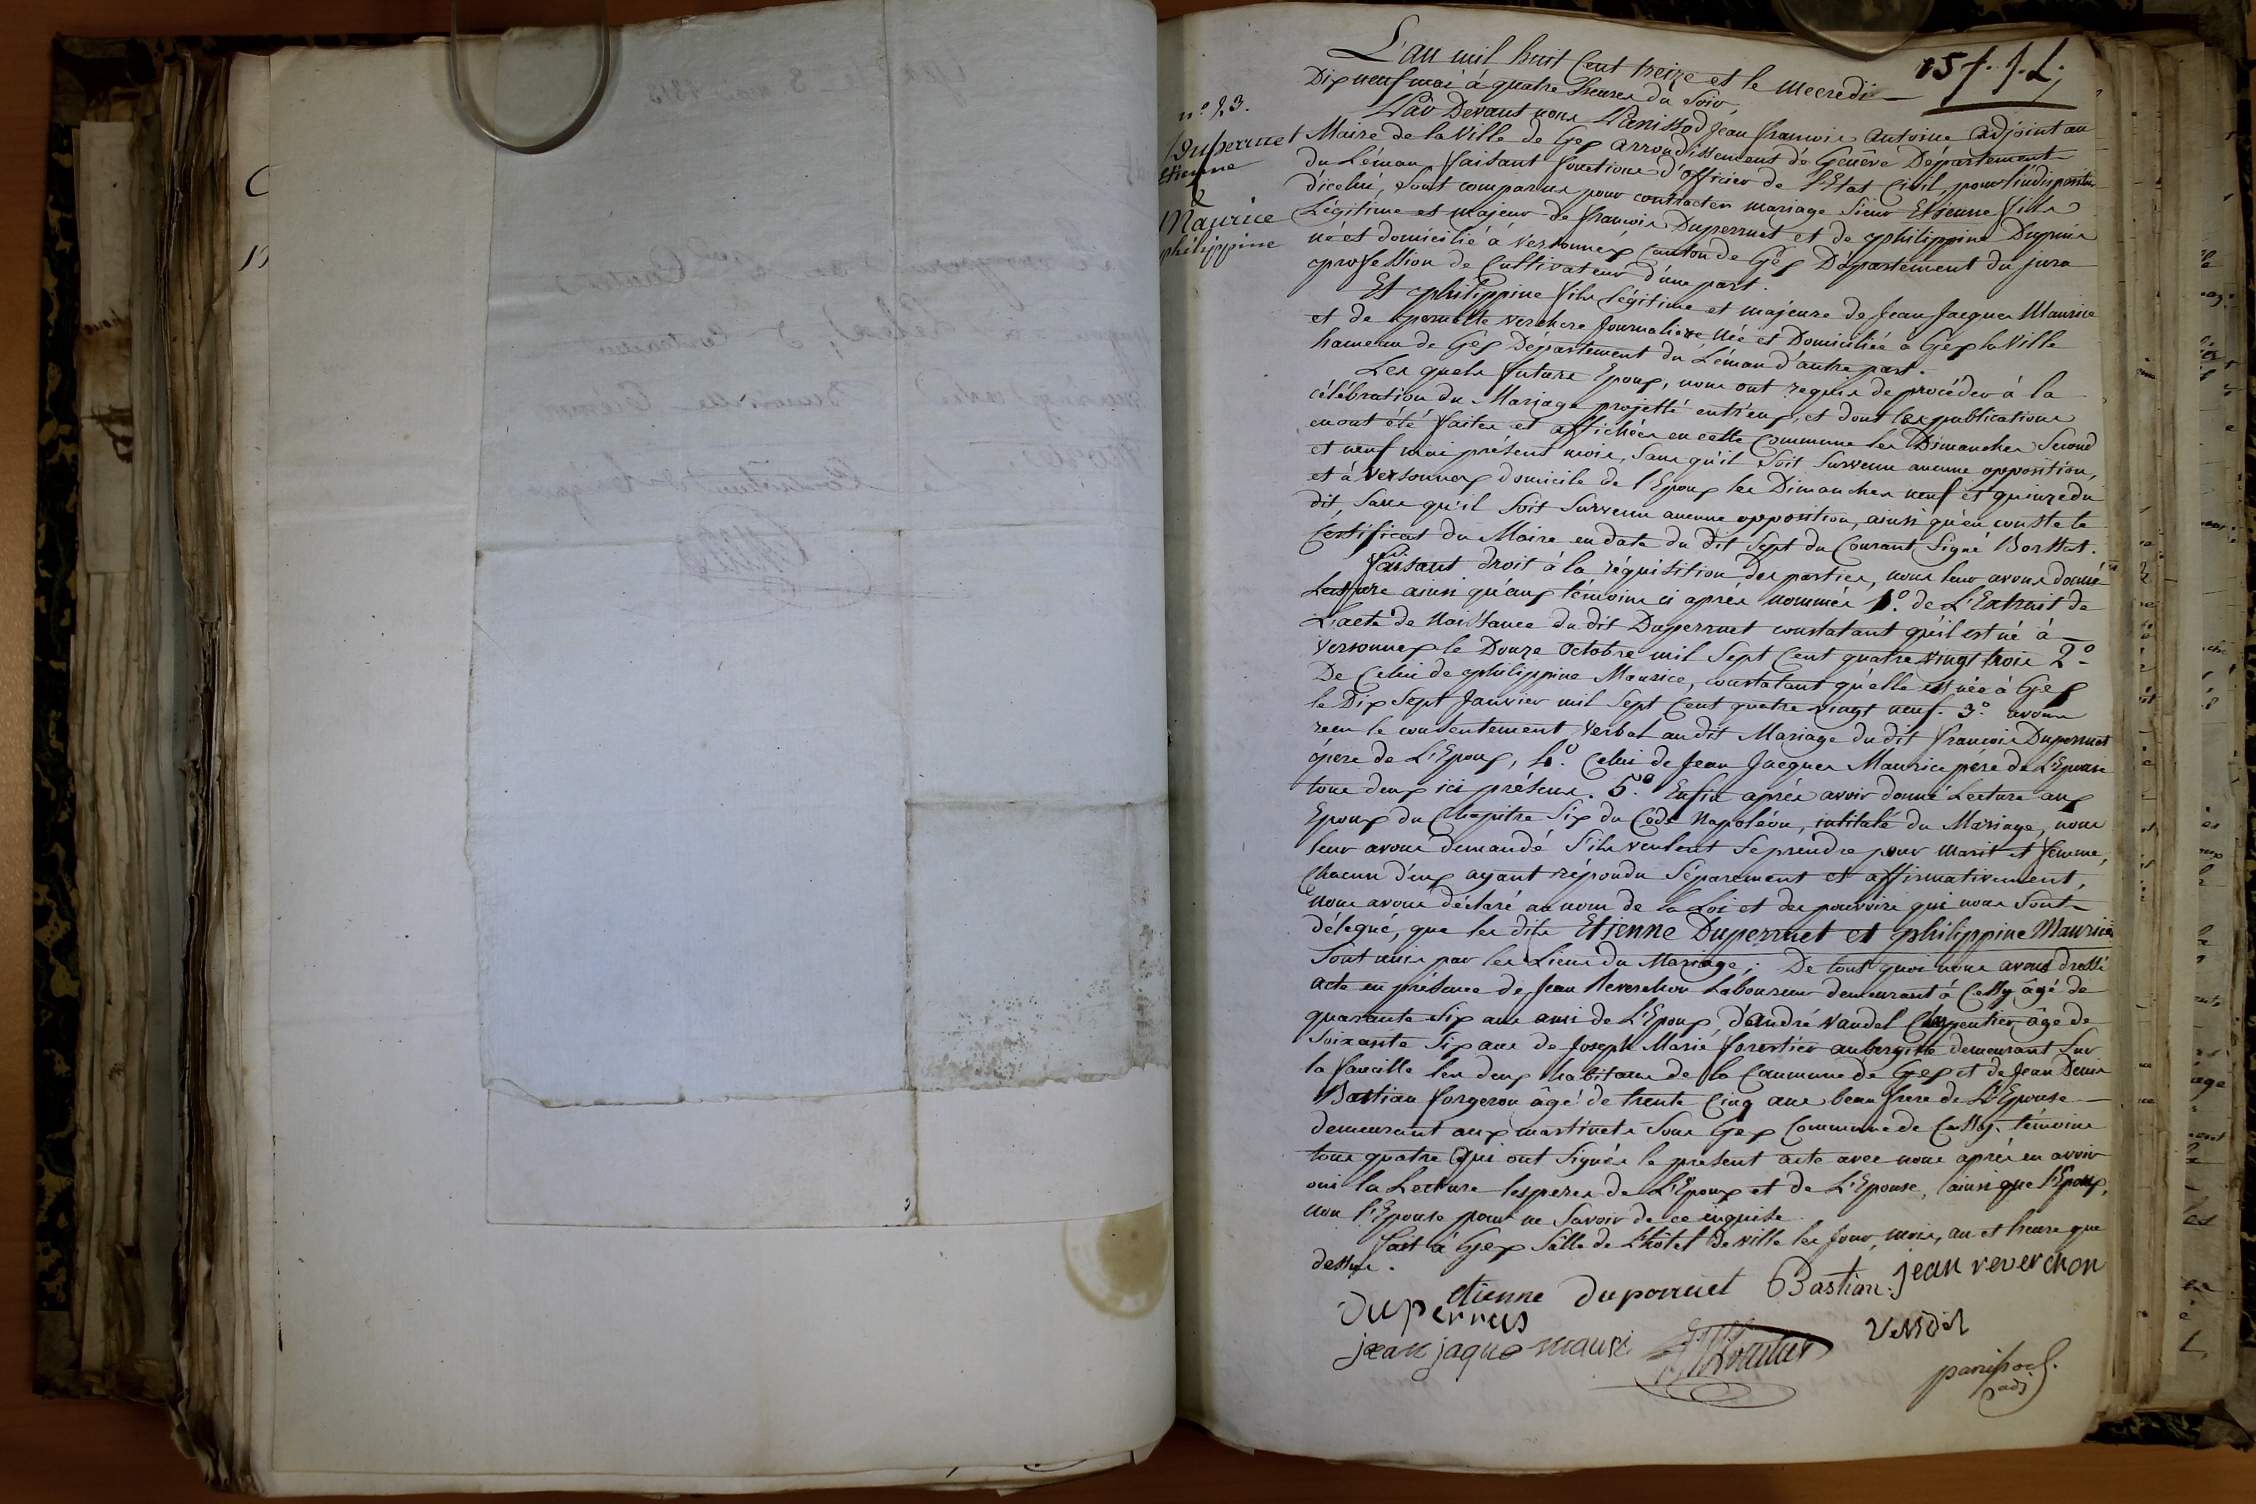 L'an mil huit Cent treize et le mecredi
Dix neuf mai à quatre heures du Soir,
Par Devant nous Panissod Jean francois Antoine adjoint au
Maire de la Ville de Gex arrondissement de Genêve Département
du Léman, faisant fonctions d'officier de l'Etat Civil, pour l'indisposition
d'icelui, sont comparus pour contracter mariage Sieur Etienne fils
Légitime et majeur de françois Duperruet et de philippine Dupuis
né et domicilié à Versonnex Canton de Gex Département du jura
profession de Cultivateur d'une part.
Et philippine fille légitime et majeure de Jean Jacques Maurice
et de pernette verchere Journaliere née et Domiciliée à Gex la Ville
hameau de Gex Département du Léman d'autre part.
Les quels futurs Epoux, nous ont requis de procéder à la
célébration du Mariage projetté entr'eux, et dont les publications
en ont été faites et affichées en cette Commune les Dimanches Second
et neuf mai présent mois, sans qu'il soit survenu aucune opposition,
et à Versonnex domicile de l'Epoux les Dimanches neuf et quinze du
dit, sans qu'il soit survenu aucune opposition, ainsi qu'en conste le
Certificat du Maire en date du dit Sept du Courant Signé
faisant droit à la réquisition des parties, nous leur avons donné
Lecture ainsi qu'aux témoins ci après nommés 1.º de L'Extrait de
L'acte de Naissance du dit Duperruet constatant qu'il est né à
Versonnex le Douze Octobre mil Sept Cent quatre vingt trois 2.º
De Celui de philippine Maurice, constatant qu'elle est née à Gex
le Dix Sept Janvier mil Sept Cent quatre vingt neuf. 3.º avons
recu le consentement Verbal au dit Mariage du dit francois Duperruet
père de L'Epoux, 4.º Celui de Jean Jacques Maurice père de L'Epouse
tous deux ici présens. 5.º Enfin après avoir donné Lecture aux
Epoux du Chapitre Six du Côde Napoléon, intitulé du Mariage, nous
leur avons demandé S'ils veulent Se prendre pour marit et femme,
Chacun d'eux ayant répondu Séparement et affirmativement,
nous avons déclaré au nom de la Loi et des pouvoirs qui nous Sont
délegué, que les dits Etienne Duperruet et philippine Maurice
Sont unis par les Liens du Mariage; De tout quoi nous avons dressé
acte en présence de Jean Reverchon Laboureur demeurant à Cessy âgé de
quarante Six ans ami de L'Epoux, d'andré Vandel Charpentier âgé de
Soixante Six ans de Joseph Marie forestier aubergiste demeurant Sur
la faucille les deux habitans de la Commune de Gex et de Jean Denis
Bastian forgeron âgé de trente Cinq ans beau frere de L'Epouse
demeurant aux martinets Sous Gex Commune de Cessy. témoins
tous quatre Qui ont Signés le présent acte avec nous après en avoir
oui la Lecture les peres de L'Epoux et de L'Epouse, ainsi que l'Epoux,
non l'Epouse pour ne Savoir de ce enquise
fait à Gex Salle de L'hôtel de ville les Jour, mois, an et heure que
dessus.
etienne duperruet Bastian. jean reverchon
Duperrus
jean jaque mauri
vandel
panissod
adj
nº 23.
Duperruet
Etienne
&
Maurice
philippine